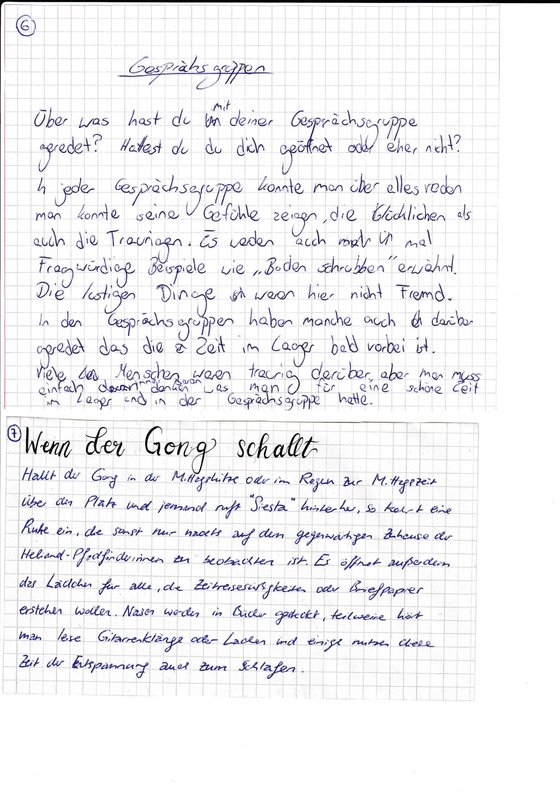 6
Gesprächsgruppen
Über was hast du mit deiner Gesprächsgruppe
geredet? Hattest du du dich geöffnet oder eher nicht?
In jeder Gesprächsgruppe konnte man über alles reden
man konnte seine Gefühle zeigen, die Glücklichen als
auch die Traurigen. Es werden auch mal
Fragwürdige Beispiele wie „Boden schrubben" erwähnt.
Die lustigen Dinge waren hier nicht Fremd.
In den Gesprächsgruppen haben manche auch darüber
geredet das die Zeit im Laager bald vorbei ist.
Viele Menschen waren traurig darüber, aber man muss
einfach daran denken was man für eine schöne Zeit
im Laager und in der Gesprächsgruppe hatte.
7
Wenn der Gong schallt
Hallt der Gong in der Mittagshitze oder im Regen zur Mittagszeit
über den Platz und jemand ruft "Siesta" hinterher, so kehrt eine
Ruhe ein, die sonst nur nachts auf dem gegenwärtigen Zuhause der
Heliand-Pfadfinderinnen zu beobachten ist. Es öffnet außerdem
das Lädchen für alle, die Zeitreisesüßigkeiten oder Briefpapier
erstehen wollen. Nasen werden in Bücher gesteckt, teilweise hört
man leise Gitarrenklänge oder Lachen und einige nutzen diese
Zeit der Entspannung auch zum Schlafen.